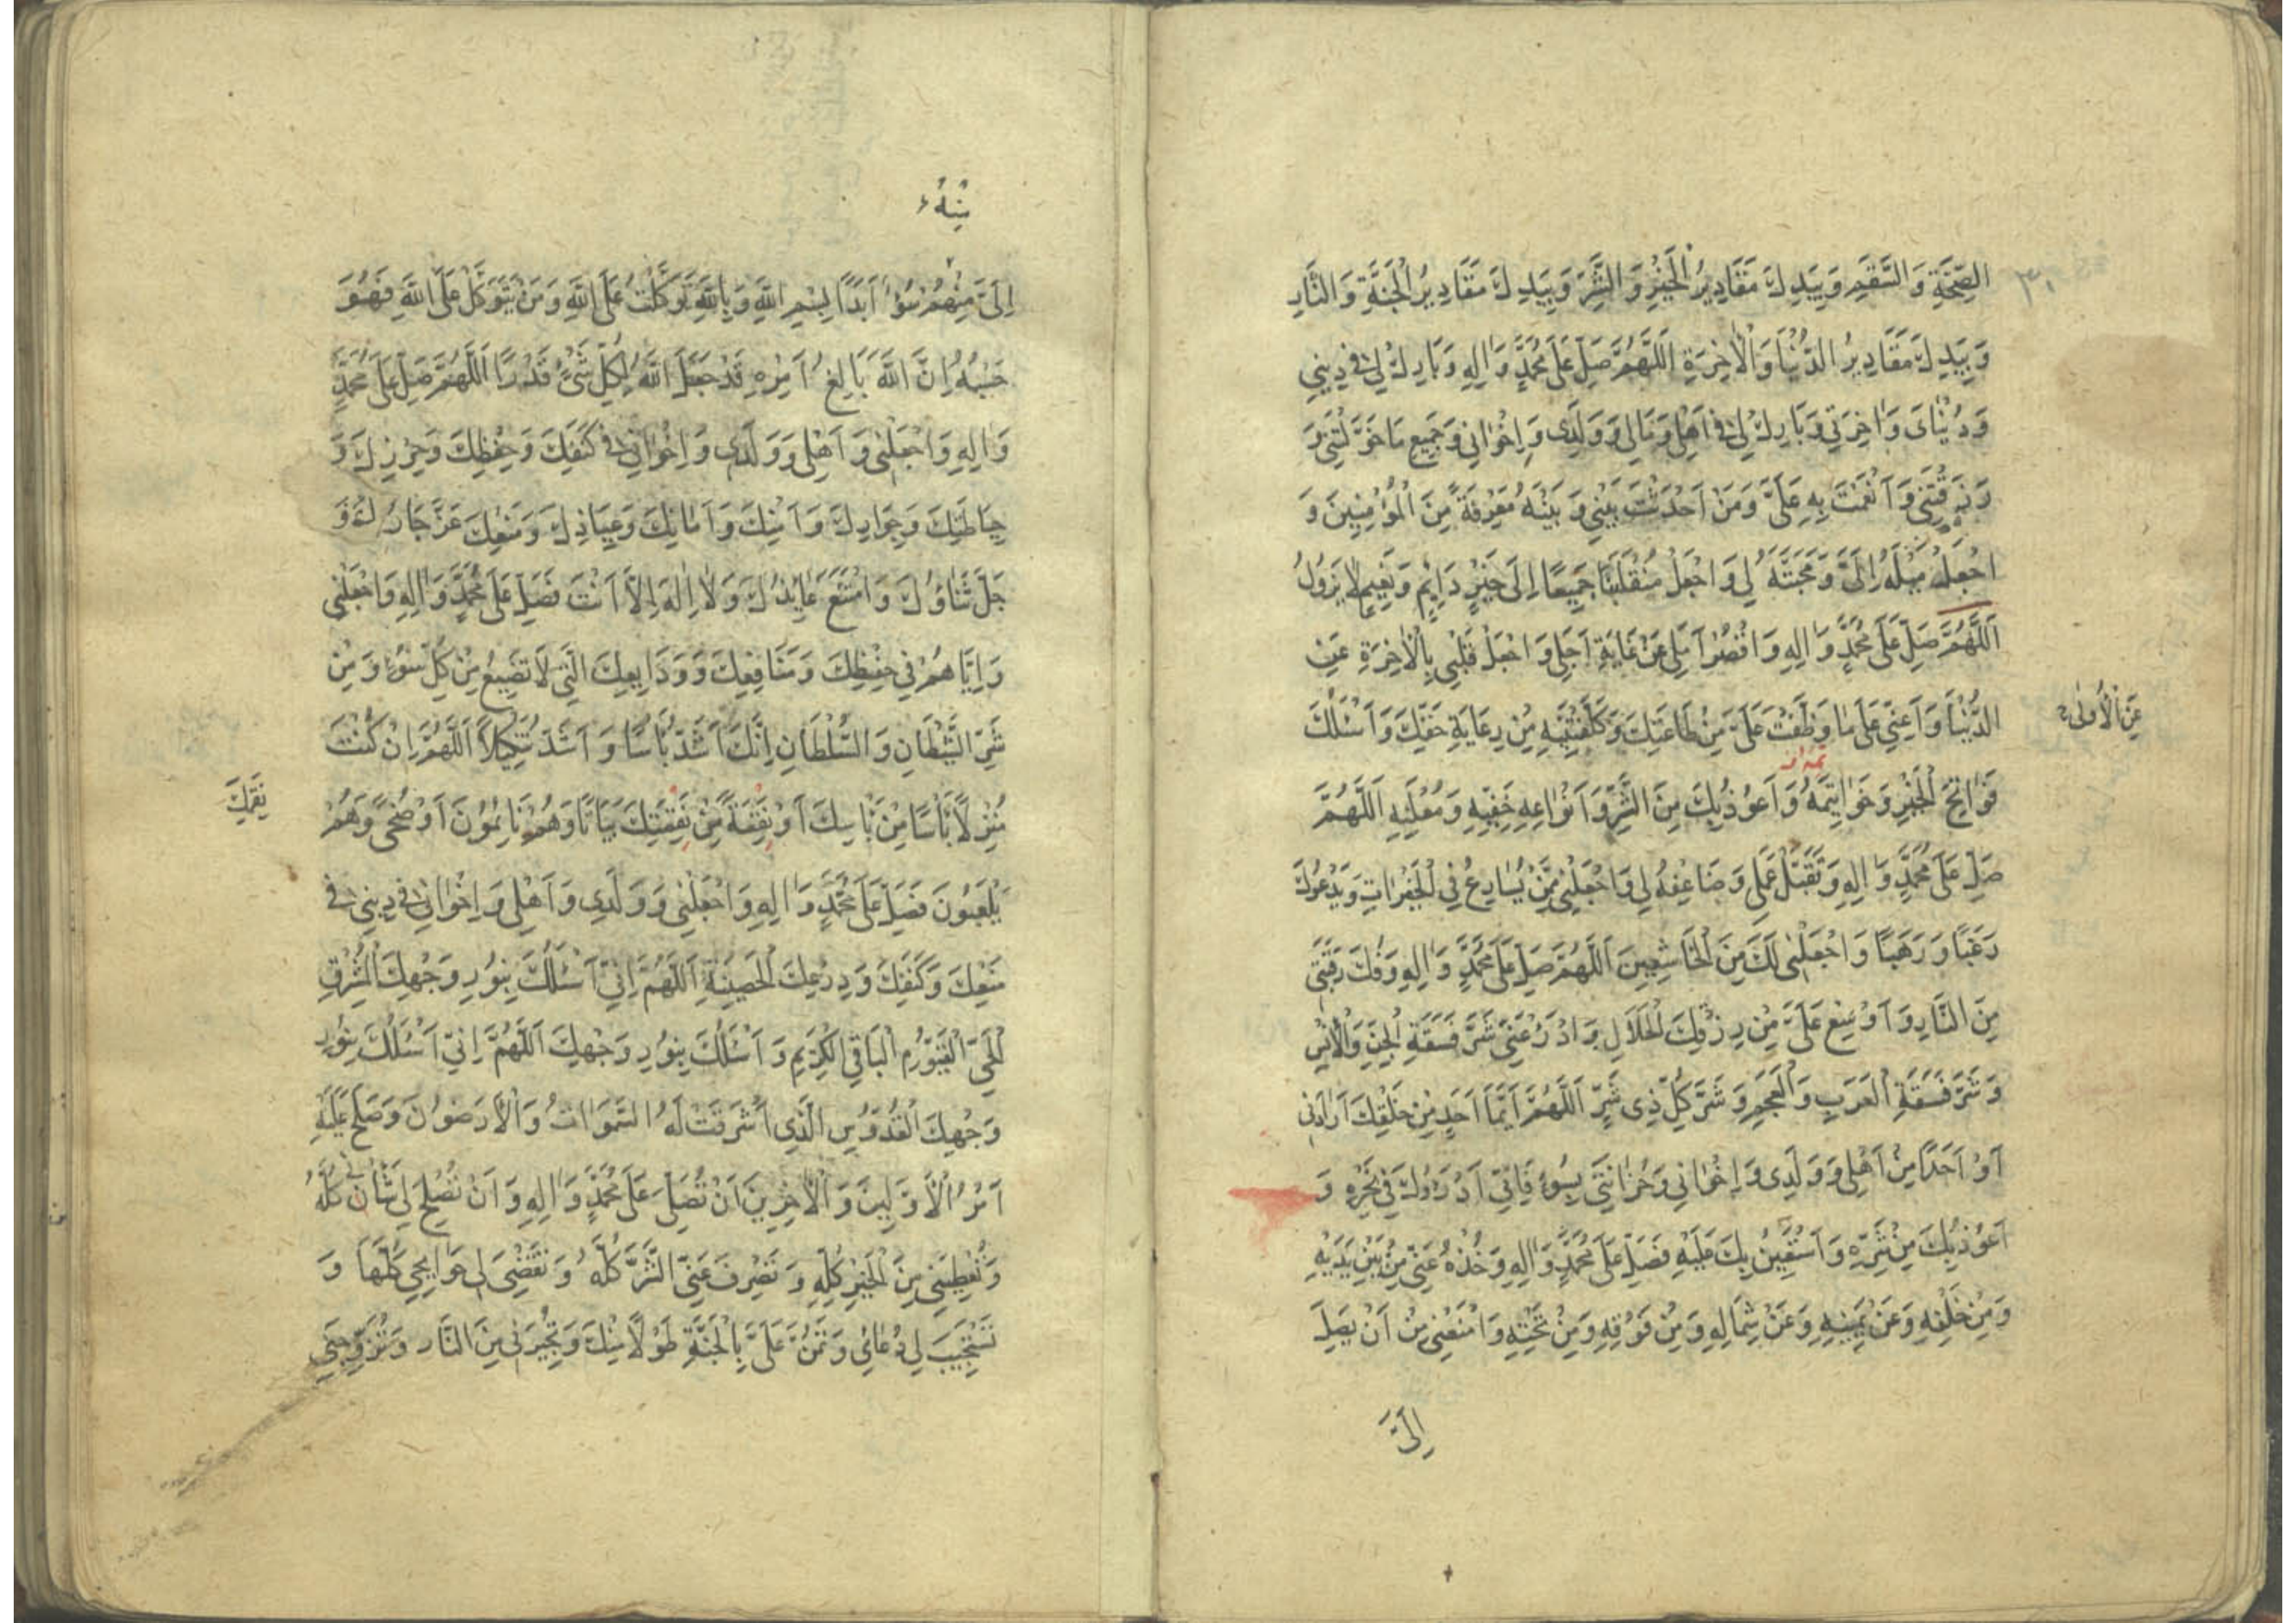 ٣٠
الصِّحَّةِ وَالسَّقَمِ وَبِيَدِكَ مَقَادِيرُ الْخَيْرِ وَالشَّرِّ وَبِيَدِكَ مَقَادِيرُ الْجَنَّةِ وَالنَّارِ
وَبِيَدِكَ مَقَادِيرُ الدُّنْيَا وَالْاٰخِرَةِ اَللَّهُمَّ صَلِّ عَلَى مُحَمَّدٍ وَاٰلِهِ وَبَارِكْ لِي فِي دِينِي
وَدُنْيَايَ وَاٰخِرَتِي وَبَارِكْ لِي فِي اَهْلِي وَمَالِي وَوَلَدِي وَاِخْوَانِي وَجَمِيعِ مَا خَوَّلْتَنِي وَ
رَزَقْتَنِي وَاَنْعَمْتَ بِهِ عَلَيَّ وَمَنْ اَحْدَثْتَ بَيْنِي وَبَيْنَهُ مَعْرِفَةً مِنَ الْمُؤْمِنِينَ وَ
اجْعَلْ مَيْلَهُ اِلَيَّ وَمَحَبَّتَهُ لِي وَاجْعَلْ مُنْقَلَبَنَا جَمِيعًا اِلَى خَيْرٍ دَايِمٍ وَنَعِيمٍ لَا يَزُولُ
اَللَّهُمَّ صَلِّ عَلَى مُحَمَّدٍ وَاٰلِهِ وَاقْصُرْ اَمَلِي عَنْ غَايَةِ اَجَلِي وَاجْعَلْ قَلْبِي بِالْاٰخِرَةِ عَنِ
الدُّنْيَا وَاَعِنِّي عَلَى مَا وَظَّفْتَ عَلَيَّ مِنْ طَاعَتِكَ وَكَلَّفْتَنِيهِ مِنْ رِعَايَةِ حَقِّكَ وَاَسْئَلُكَ
عَنِ الْاُولٰى
فَوَاتِحَ الْخَيْرِ وَخَوَاتِيمَهُ وَاَعُوذُ بِكَ مِنَ الشَّرِّ وَاَنْوَاعِهِ خَفِيِّهِ وَمُعْلَنِهِ اَللَّهُمَّ
صَلِّ عَلَى مُحَمَّدٍ وَاٰلِهِ وَتَقَبَّلْ عَمَلِي وَضَاعِفْهُ لِي وَاجْعَلْنِي مِمَّنْ يُسَارِعُ فِي الْخَيْرَاتِ وَيَدْعُوكَ
رَغَبًا وَرَهَبًا وَاجْعَلْنِي لَكَ مِنَ الْخَاشِعِينَ اَللَّهُمَّ صَلِّ عَلَى مُحَمَّدٍ وَاٰلِهِ وَفُكَّ رَقَبَتِي
مِنَ النَّارِ وَاَوْسِعْ عَلَيَّ مِنْ رِزْقِكَ الْحَلَالِ وَادْرَأْ عَنِّي شَرَّ فَسَقَةِ الْجِنِّ وَالْاِنْسِ
وَشَرَّ فَسَقَةِ الْعَرَبِ وَالْعَجَمِ وَشَرَّ كُلِّ ذِي شَرٍّ اَللَّهُمَّ اَيُّمَا اَحَدٍ مِنْ خَلْقِكَ اَرَادَنِي
اَوْ اَحَدًا مِنْ اَهْلِي وَوَلَدِي وَاِخْوَانِي وَحُزَانَتِي بِسُوءٍ فَاِنِّي اَدْرَؤُكَ فِي نَحْرِهِ وَ
اَعُوذُ بِكَ مِنْ شَرِّهِ وَاَسْتَعِينُ بِكَ عَلَيْهِ فَصَلِّ عَلَى مُحَمَّدٍ وَاٰلِهِ وَخُذْهُ عَنِّي مِنْ بَيْنِ يَدَيْهِ
وَمِنْ خَلْفِهِ وَعَنْ يَمِينِهِ وَعَنْ شِمَالِهِ وَمِنْ فَوْقِهِ وَمِنْ تَحْتِهِ وَامْنَعْنِي مِنْ اَنْ يَصِلَ
اِلَيَّ
مِنْهُ
اِلَيَّ مِنْهُمْ سُوءٌ اَبَدًا بِسْمِ اللّٰهِ وَبِاللّٰهِ تَوَكَّلْتُ عَلَى اللّٰهِ وَمَنْ يَتَوَكَّلْ عَلَى اللّٰهِ فَهُوَ
حَسْبُهُ اِنَّ اللّٰهَ بَالِغُ اَمْرِهِ قَدْ جَعَلَ اللّٰهُ لِكُلِّ شَيْءٍ قَدْرًا اَللَّهُمَّ صَلِّ عَلَى مُحَمَّدٍ
وَاٰلِهِ وَاجْعَلْنِي وَاَهْلِي وَوَلَدِي وَاِخْوَانِي فِي كَنَفِكَ وَحِفْظِكَ وَحِرْزِكَ وَ
حِيَاطَتِكَ وَجِوَارِكَ وَاَمْنِكَ وَاَمَانِكَ وَعِيَاذِكَ وَمَنْعِكَ عَزَّ جَارُكَ وَ
جَلَّ ثَنَاؤُكَ وَامْتَنَعَ عَايِذُكَ وَلَا اِلٰهَ اِلَّا اَنْتَ فَصَلِّ عَلَى مُحَمَّدٍ وَاٰلِهِ وَاجْعَلْنِي
وَاِيَّاهُمْ فِي حِفْظِكَ وَمَنَافِعِكَ وَوَدَايِعِكَ الَّتِي لَا تَضِيعُ مِنْ كُلِّ سُوءٍ وَمِنْ
شَرِّ الشَّيْطَانِ وَالسُّلْطَانِ اِنَّكَ اَشَدُّ بَأْسًا وَاَشَدُّ تَنْكِيلًا اَللَّهُمَّ اِنْ كُنْتَ
مُنْزِلًا بَأْسًا مِنْ بَأْسِكَ اَوْ نَقِمَةً مِنْ نَقِمَتِكَ بَيَاتًا وَهُمْ نَايِمُونَ اَوْ ضُحًى وَهُمْ
نَقِمِكَ
يَلْعَبُونَ فَصَلِّ عَلَى مُحَمَّدٍ وَاٰلِهِ وَاجْعَلْنِي وَوَلَدِي وَاَهْلِي وَاِخْوَانِي فِي دِينِي فِي
مَنْعِكَ وَكَنَفِكَ وَدِرْعِكَ الْحَصِينَةِ اَللَّهُمَّ اِنِّي اَسْئَلُكَ بِنُورِ وَجْهِكَ الْمُشْرِقِ
الْحَيِّ الْقَيُّومِ الْبَاقِي الْكَرِيمِ وَاَسْئَلُكَ بِنُورِ وَجْهِكَ اَللَّهُمَّ اِنِّي اَسْئَلُكَ بِنُورِ
وَجْهِكَ الْقُدُّوسِ الَّذِي اَشْرَقَتْ لَهُ السَّمَوَاتُ وَالْاَرَضُونَ وَصَلَحَ عَلَيْهِ
اَمْرُ الْاَوَّلِينَ وَالْاٰخِرِينَ اَنْ تُصَلِّيَ عَلَى مُحَمَّدٍ وَاٰلِهِ وَاَنْ تُصْلِحَ لِي شَأْنِي كُلَّهُ
وَتُعْطِيَنِي مِنَ الْخَيْرِ كُلِّهِ وَتَصْرِفَ عَنِّي الشَّرَّ كُلَّهُ وَتَقْضِيَ لِي حَوَايِجِي كُلَّهَا وَ
تَسْتَجِيبَ لِي دُعَائِي وَتَمُنَّ عَلَيَّ بِالْجَنَّةِ طَوْلًا مِنْكَ وَتُجِيرَنِي مِنَ النَّارِ وَتُزَوِّجَنِي